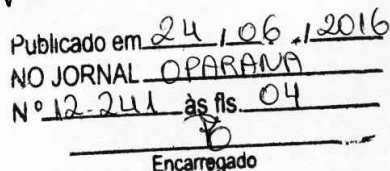 Publicado em 24 / 06 / 2016
NO JORNAL OPARANA
Nº 12.241 às fls. 04
Encarregado